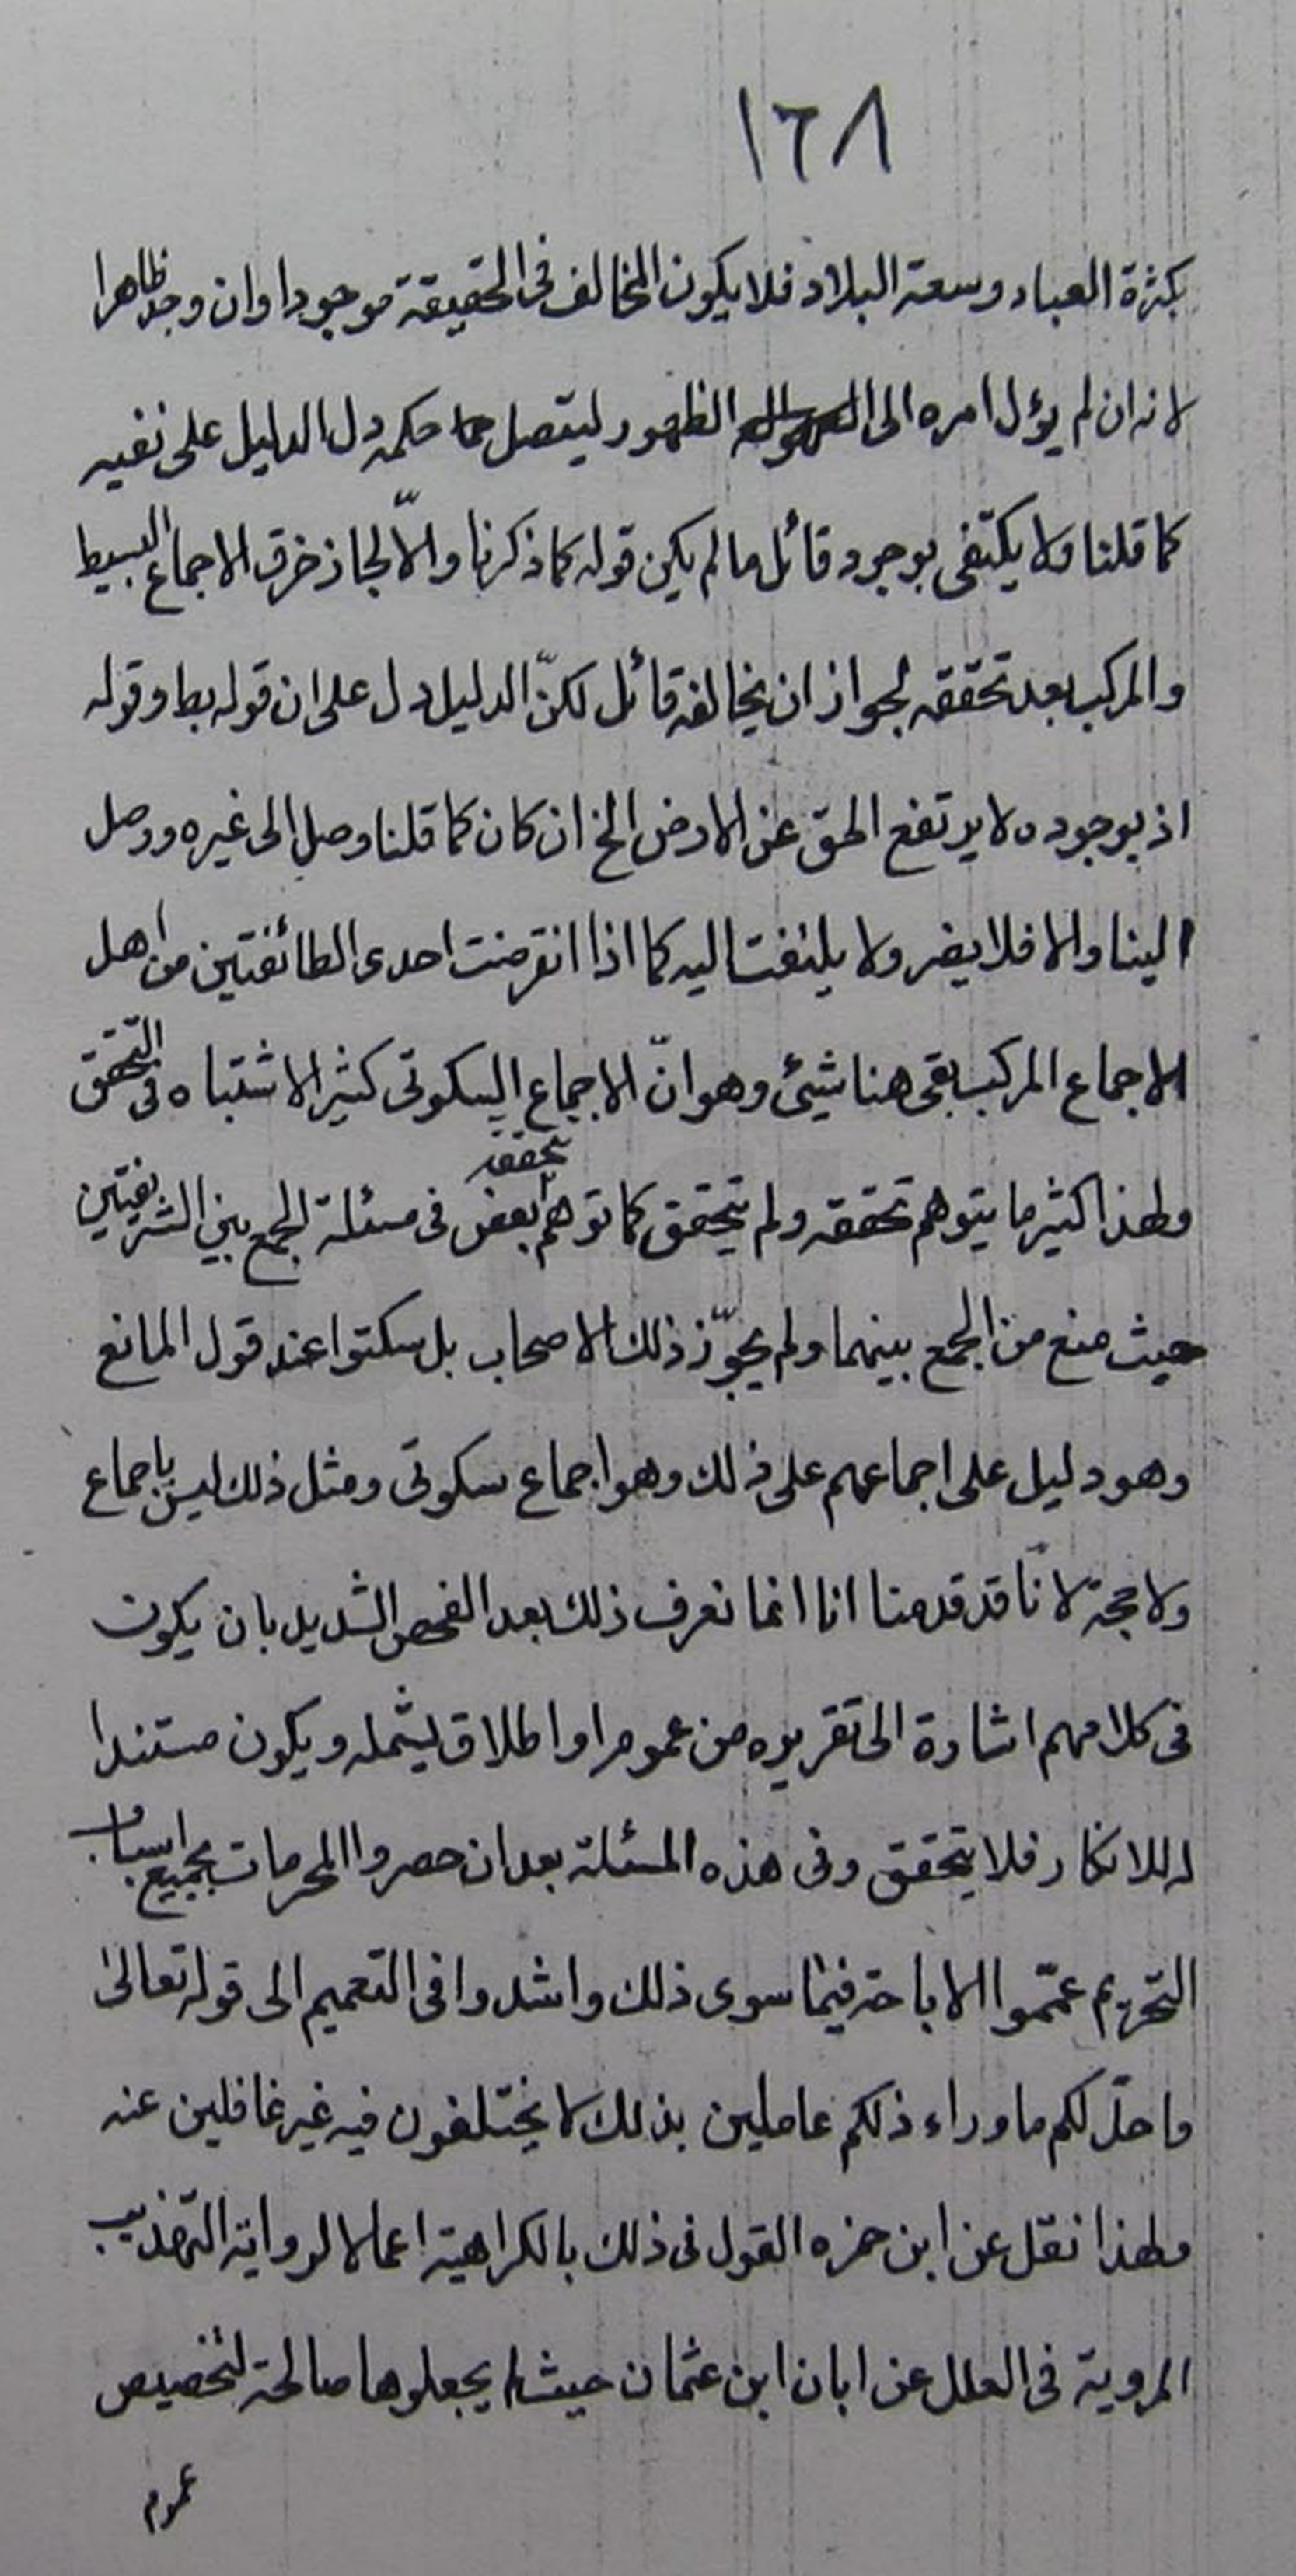 ١٦٨
بكثرة العباد وسعة البلاد فلا يكون المخالف فى الحقيقة موجودا وان وجد ظاهرا
لانه ان لم يؤل امره الى الظهور ليتصل حكمه دل الدليل على نفيه
كما قلنا ولا يكتفى بوجود قائل ما لم يكن قوله كما ذكرنا والّا لجاز خرق الاجماع البسيط
والمركب بعد تحققه لجواز ان يخالفه قائل لكنّ الدليل دل على ان قوله بط وقوله
اذ بوجوده لا يرتفع الحق عن الارض الخ ان كان كما قلنا وصل الى غيره ووصل
الينا والا فلا يضر ولا يلتفت اليه كما اذا انقرضت احدى الطائفتين من اهل
الاجماع المركب بقى هنا شيئ وهو انّ الاجماع السكوتى كثير الاشتباه فى التحقق
ولهذا كثير ما يتوهم تحققه ولم يتحقق كما توهم بعض تحققه فى مسئلة الجمع بين الشريفتين
حيث منع من الجمع بينهما ولم يجوّز ذلك الاصحاب بل سكتوا عند قول المانع
وهو دليل على اجماعهم على ذلك وهو اجماع سكوتى ومثل ذلك ليس باجماع
ولا حجة لانّا قد قدمنا انا انما نعرف ذلك بعد الفحص الشديد بان يكون
فى كلامهم اشارة الى تقريره من عموم او اطلاق يشمله ويكون مستندا
له للانكار فلا يتحقق وفى هذه المسئلة بعد ان حصروا المحرمات بجميع اسباب
التحريم عمّموا الاباحة فيما سوى ذلك واشدوا فى التعميم الى قوله تعالى
واحلّ لكم ما وراء ذلكم عاملين بذلك لا يختلفون فيه غير غافلين عنه
ولهذا نقل عن ابن حمزه القول فى ذلك بالكراهية اعمالا لرواية التهذيب
المروية فى العلل عن ابان ابن عثمان حيث لم يجعلوها صالحة لتخصيص
عموم